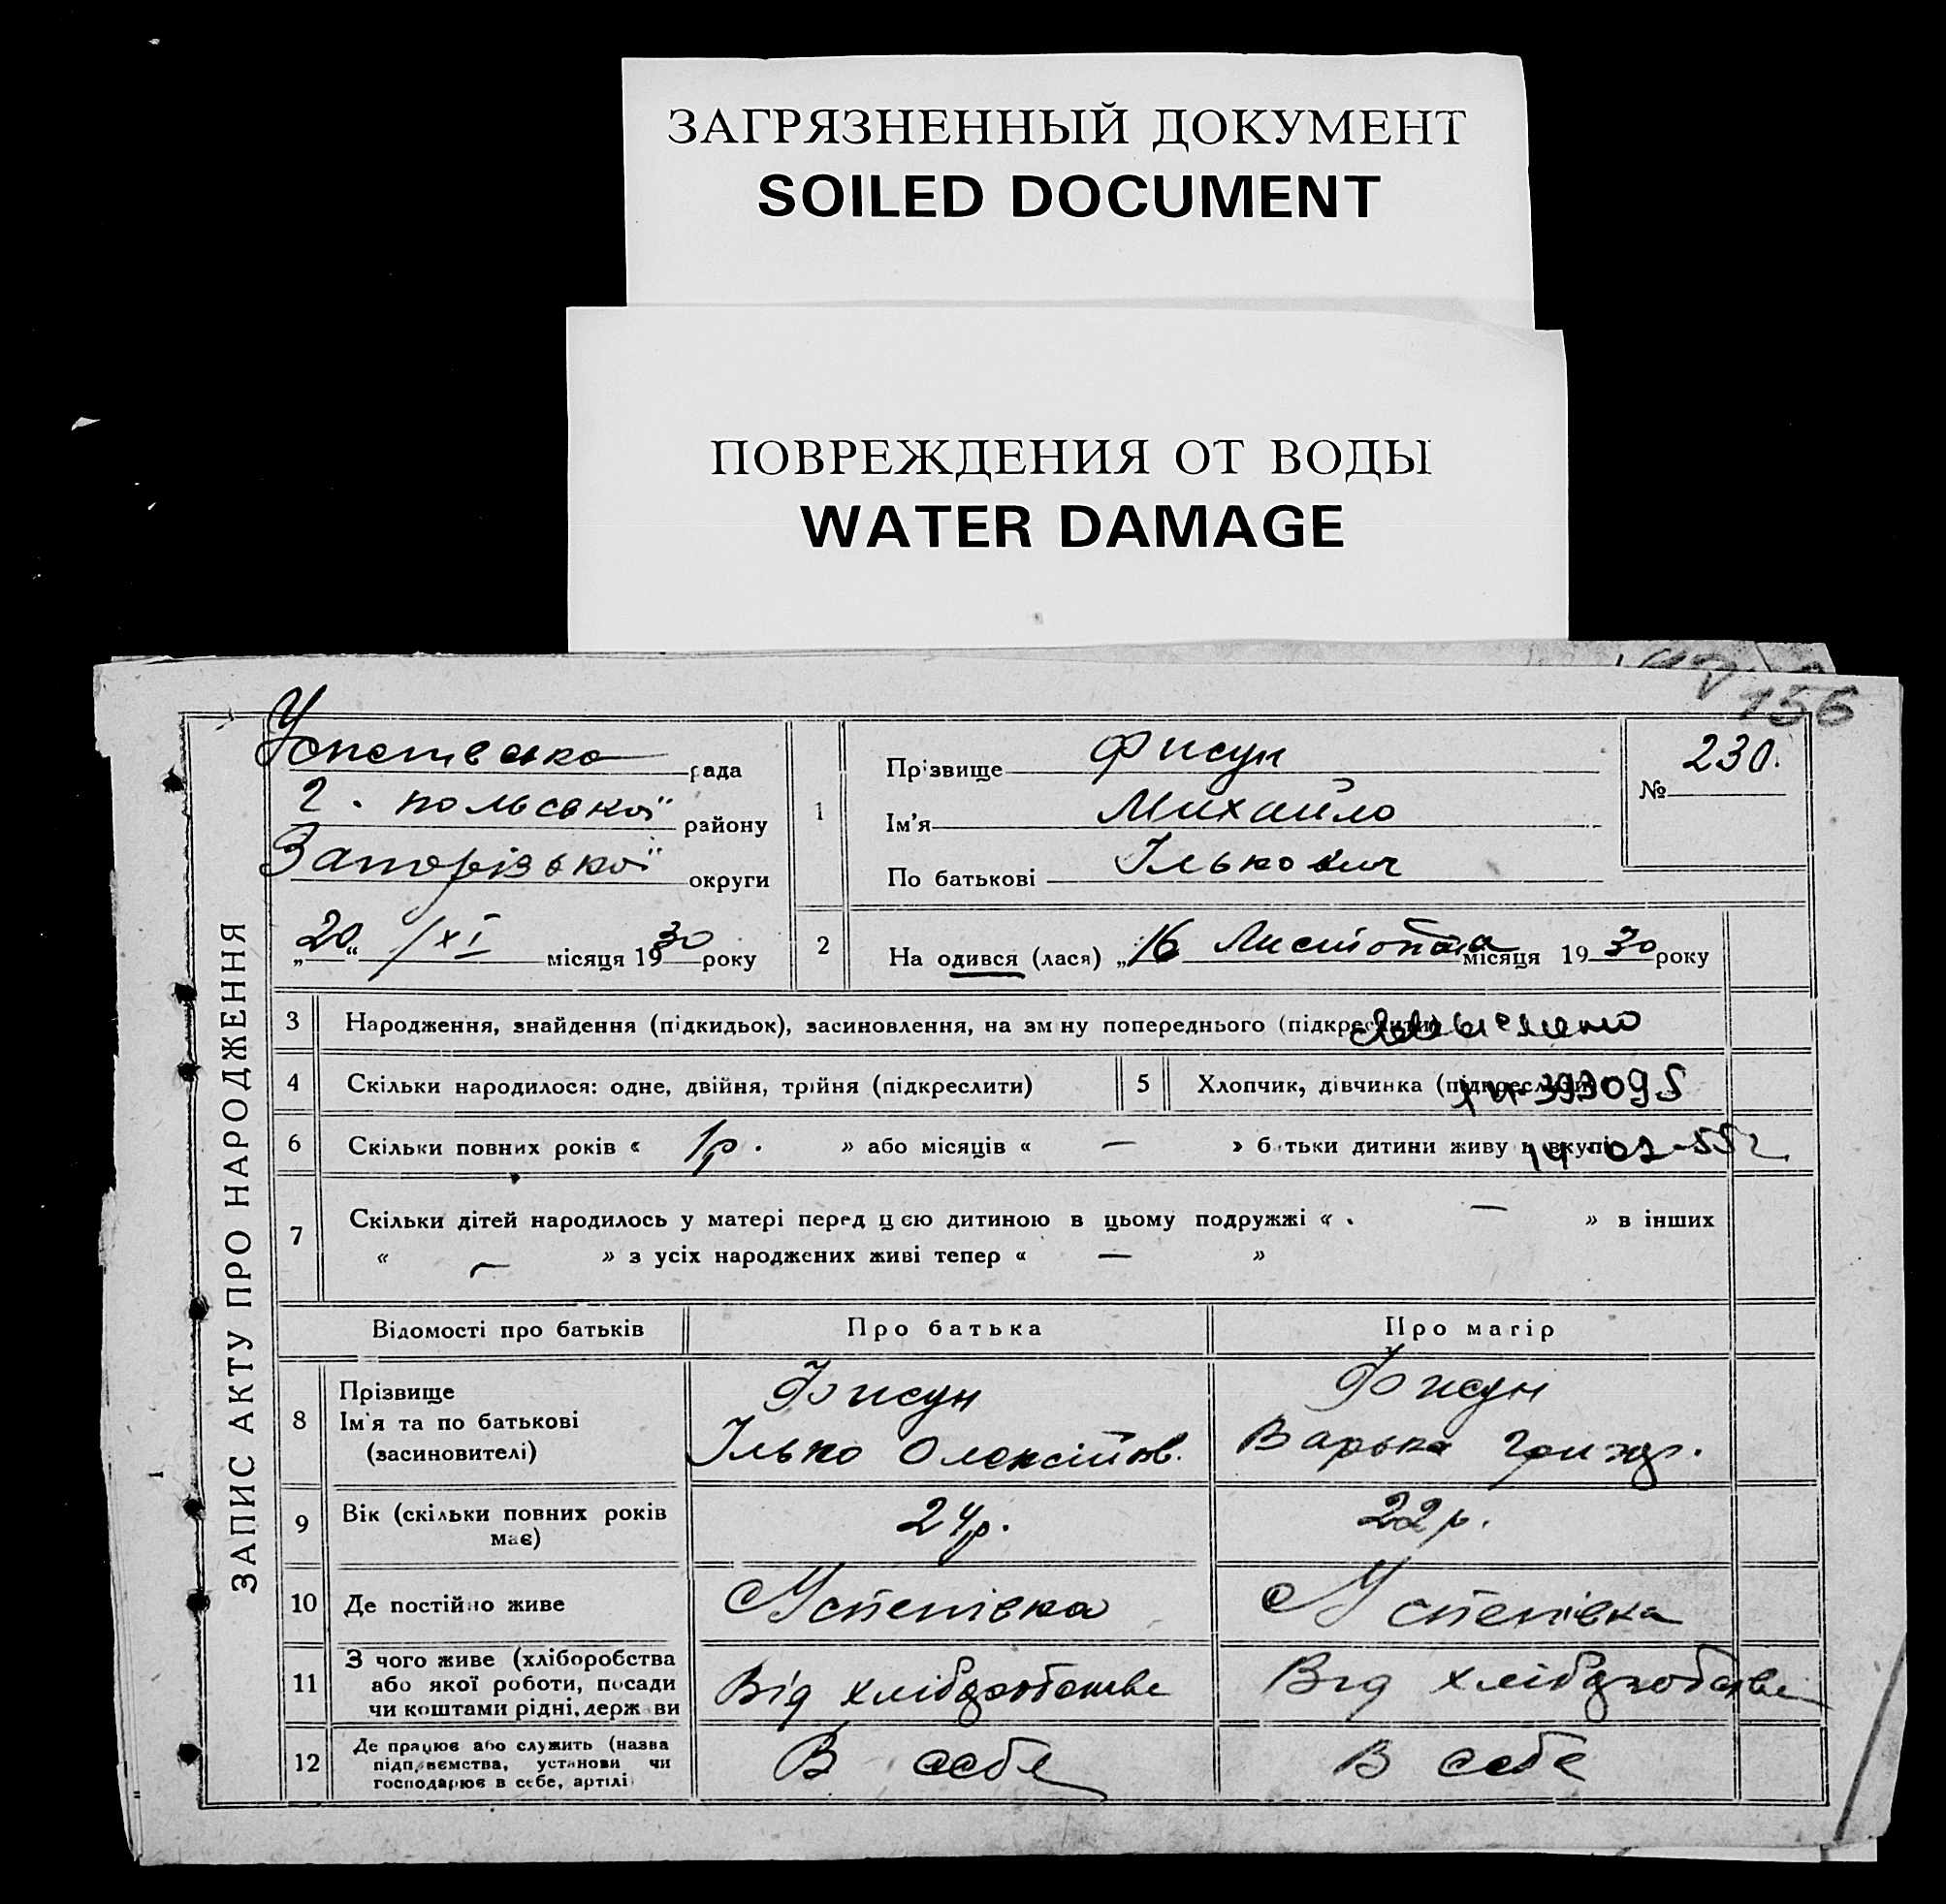 ЗАГРЯЗНЕННЫЙ ДОКУМЕНТ
SOILED DOCUMENT
ПОВРЕЖДЕНИЯ ОТ ВОДЫ
WATER DAMAGE
156
ЗАПИС АКТУ ПРО НАРОДЖЕННЯ
рада
Г. польської району
Запорізької округи
„20“ /XI місяця 1930 року
1
Прізвище Фисун
Ім'я Михайло
По батькові Ількович
№ 230.
2
На одився (лася) „16 Листопада місяця 1930 року
3 Народження, знайдення (підкидьок), засиновлення, на зм ну попереднього (підкреслити)
4 Скільки народилося: одне, двійня, трійня (підкреслити)
5 Хлопчик, дівчинка (підкреслити) 393095
6 Скільки повних років « 1р. » або місяців « — » б тьки дитини живу ь вкупі
7 Скільки дітей народилось у матері перед цєю дитиною в цьому подружжі « — » в інших
« — » з усіх народжених живі тепер « — »
Відомості про батьків Про батька Про матір
8 Прізвище
Ім'я та по батькові
(засиновителі)
Фисун
Ілько Олексійов.
Фисун
Варька Григ.
9 Вік (скільки повних років
має)
24р. 22р.
10 Де постійно живе Успенівка Успенівка
11 З чого живе (хліборобства
або якої роботи, посади
чи коштами рідні, держ ви
Від хліборобства Від хліборобства
12 Де працює або служить (назва
підприємства, установи чи
господарює в себе, артілі)
В себе В себе